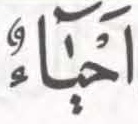 اَحْيَآءٌ